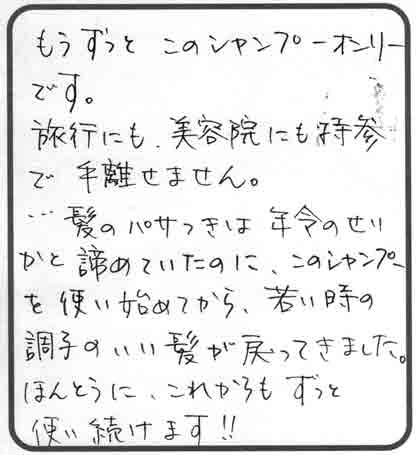 もうずっと このシャンプーオンリー
です。
旅行にも、美容院にも持参
で 手離せません。
…髪のパサつきは 年令のせい
かと 諦めていたのに、このシャンプー
を 使い始めてから、若い時の
調子のいい髪が戻ってきました。
ほんとうに、これからも ずっと
使い続けます!!